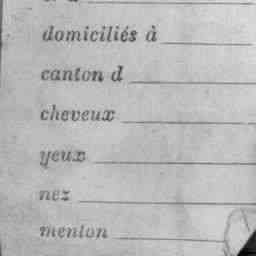 domiciliés à
canton d
cheveux
yeux
nez
menton